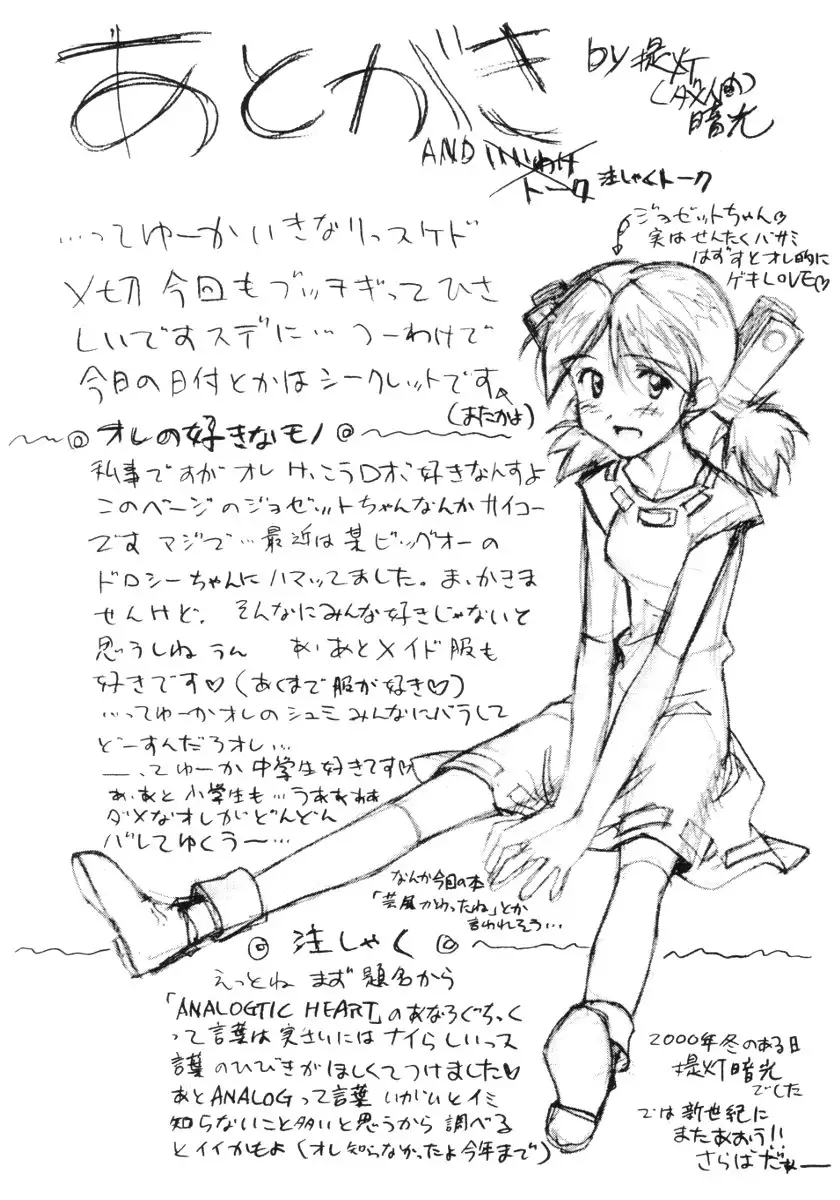 あとがき
by 提灯
(ダメ人間)
暗光
AND いいわけ
トーク 注しゃくトーク
ジョゼットちゃん♡
実はせんたくバサミ
はずすとオレ的に
ゲキLOVE♡
…ってゆーかいきなりっスケド
〆切今回もブッチギってひさ
しいですスデに… つーわけで
今日の日付とかはシークレットです
(またかよ)
◎オレの好きなモノ◎
私事ですがオレけっこうロボ好きなんすよ
このページのジョゼットちゃんなんかサイコー
です マジで…最近は某ビッグオーの
ドロシーちゃんにハマってました。ま、かきま
せんけど。 そんなにみんな好きじゃないと
思うしね うん あ、あとメイド服も
好きです♡(あくまで服が好き♡)
…ってゆーかオレのシュミみんなにバラして
どーすんだろオレ…
ー、てゆーか 中学生好きです♡
あ、あと小学生も…うあああ
ダメなオレがどんどん
バレてゆくうー…
なんか今回の本
「芸風かわったね」とか
言われそう…
◎ 注しゃく ◎
えっとね まず 題名から
「ANALOGTIC HEART」のあなろぐちっく
って言葉は実さいにはナイらしいっス
言葉のひびきがほしくてつけました♡
あとANALOGって言葉 いがいとイミ
知らないこと多いと思うから 調べる
とイイかもよ(オレ知らなかったよ今年まで)
2000年冬のある日
提灯暗光
でした
では新世紀に
またあおう!!
さらばだぁー